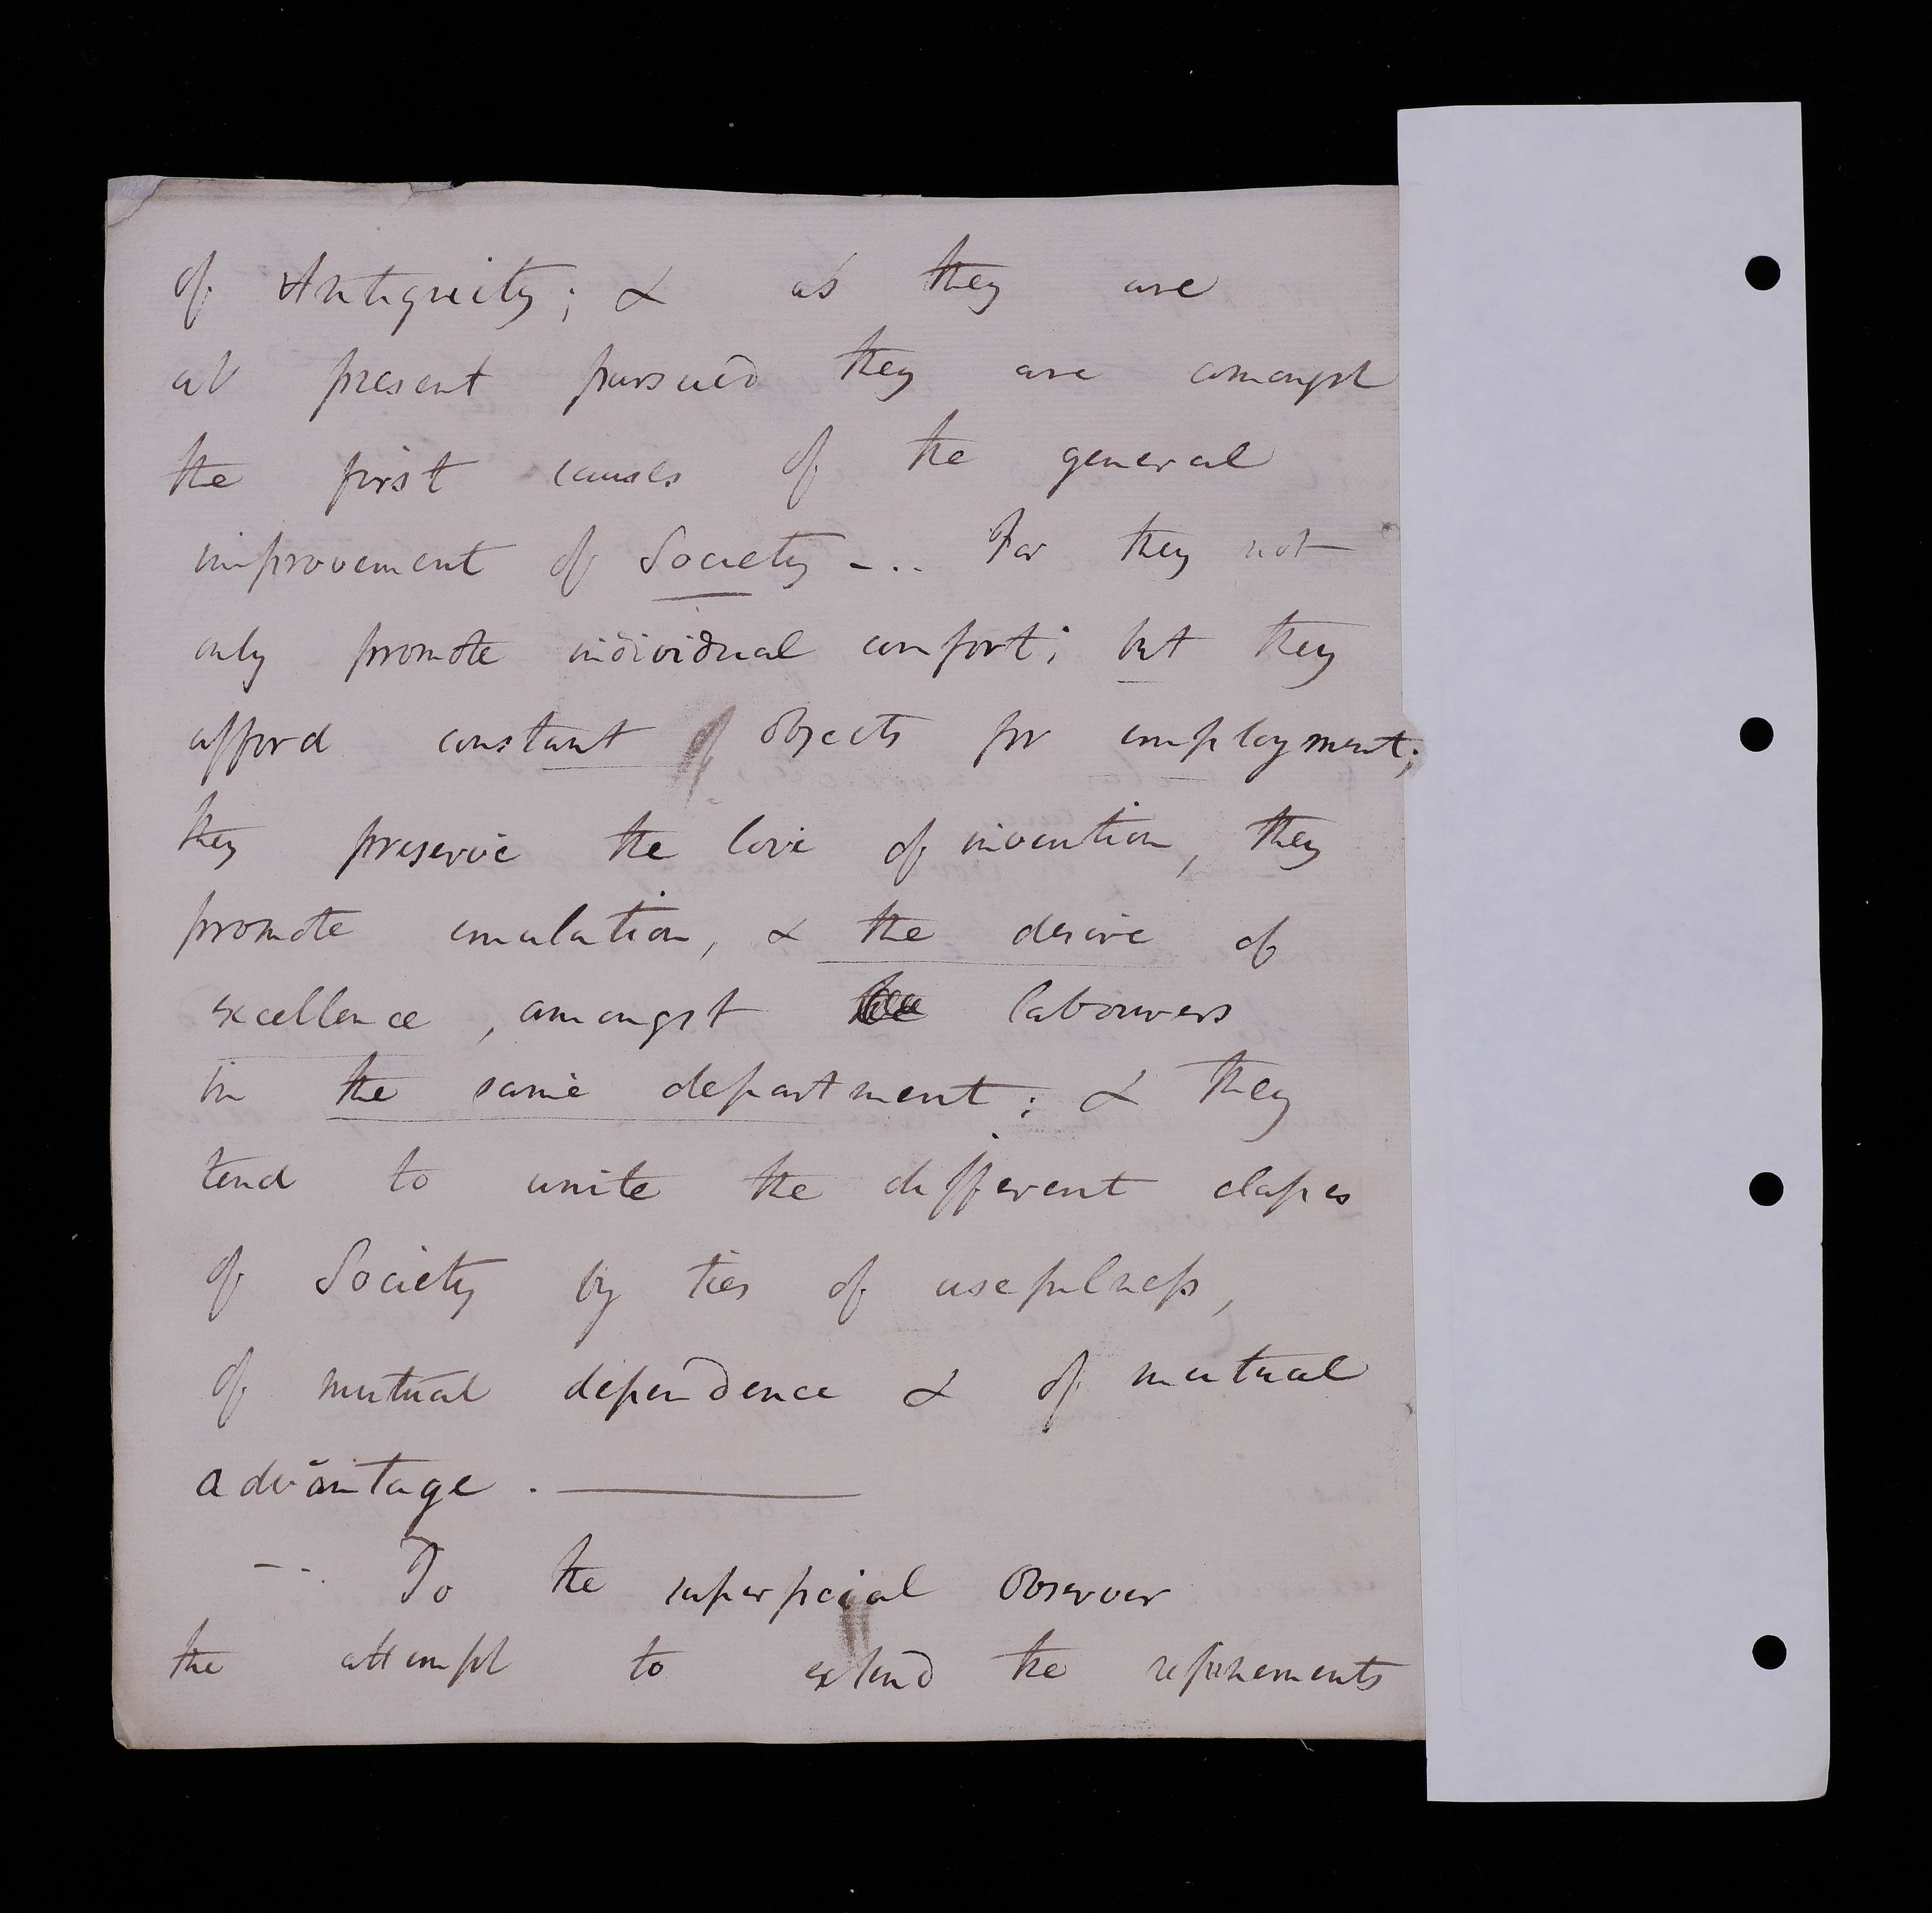 of Antiquity; & as they are
at present pursued they are amongst
the first causes of the general
improvement of Society -... For they not
only promote individual comfort; but they
afford constant objects for employment;
they preserve the love of invention, they
promote emulation, & the desire of
excellence, amongst labourers
in the same department: & they
tend to unite the different classes
of Society by ties of usefulness,
of mutual dependence & of mutual
advantage. ———
- - . To the superficial observer
the attempt to extend the refinements